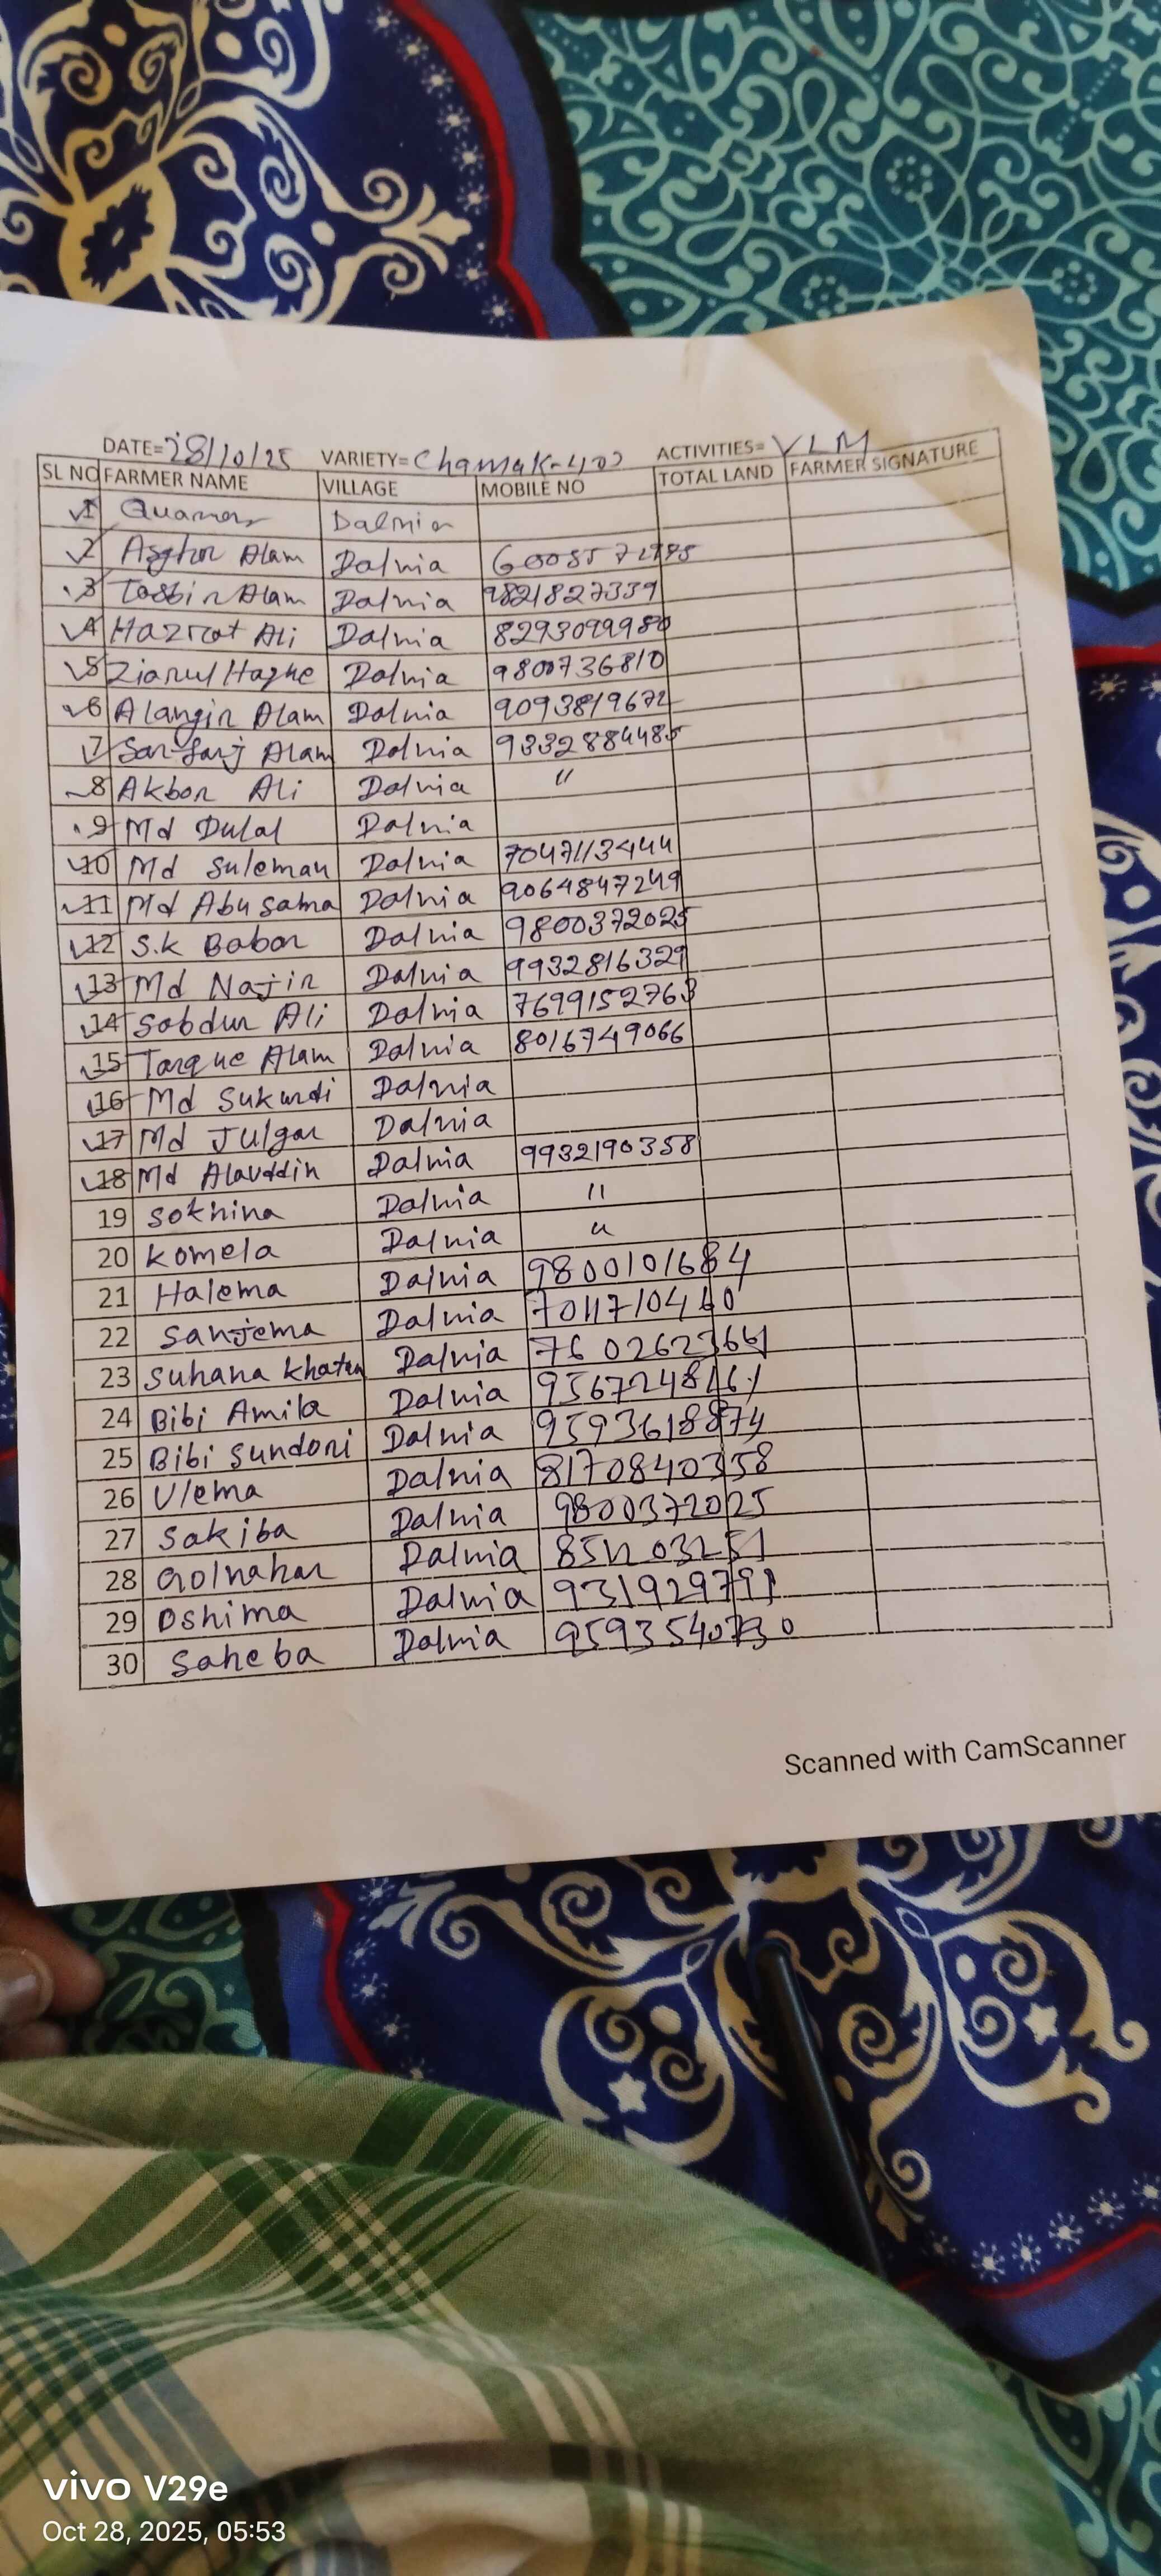 DATE=28/10/25 VARIETY=Chamak-402 ACTIVITIES= VLM
SL NO FARMER NAME VILLAGE MOBILE NO TOTAL LAND FARMER SIGNATURE
1 Dalnia
2 Alam Dalnia
3 Tosbir Alam Dalnia 9821827339
4 Hazrat Ali Dalnia 8293099980
5 Ziarul Haque Dalnia 9800736810
6 Alangir Alam Dalnia 9093819672
7 Alam Dalnia 9332884485
8 Akbor Ali Dalnia "
9 Md Dulal Dalnia
10 Md Suleman Dalnia 7047113444
11 Md Abu Sama Dalnia 9064847249
12 S.k Babor Dalnia 9800372025
13 Md Najir Dalnia 9932816329
14 Sobdur Ali Dalnia 7699152763
15 Tarque Alam Dalnia 8016749066
16 Md Sukurdi Dalnia
17 Md Julgar Dalnia
18 Md Alauddin Dalnia 9932190358
19 Sokhina Dalnia "
20 Komela Dalnia "
21 Halema Dalnia 9800101684
22 Sanjema Dalnia
23 Suhana Khatun Dalnia
24 Bibi Amila Dalnia
25 Bibi Sundori Dalnia 9593618874
26 Ulema Dalnia 8170840358
27 Sakiba Dalnia 9800372025
28 Golnahar Dalnia
29 Oshima Dalnia
30 Saheba Dalnia 9593540730
Scanned with CamScanner
vivo V29e
Oct 28, 2025, 05:53